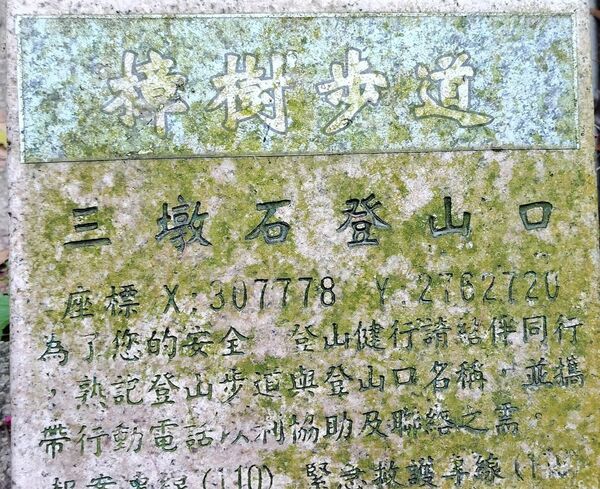 樟樹步道
三墩石登山口
座標 X:307778 Y:2762720
為了您的安全，登山健行請結伴同行
，熟記登山步道與登山口名稱，並攜
帶行動電話以利協助及聯絡之需。
報案專線(110) 緊急救護專線(119)